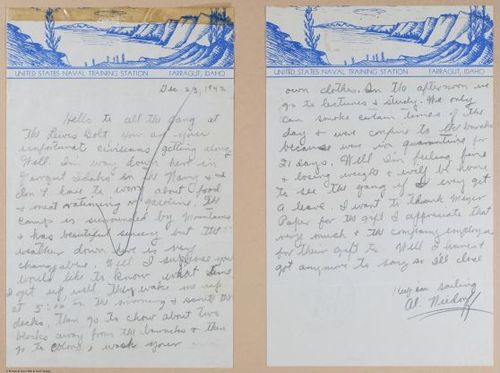 UNITED STATES NAVAL TRAINING STATION FARRAGUT, IDAHO
Dec 23, 1942
Hello to all the gang at
The Lewis Bolt how are your
unfortunate civilians getting along
Well I'm way down here in
Farragut Idaho in the Navy & I
don't have to worry about food
& meat rationing or gasoline. The
camp is surrounded by Mountains
& has beautiful scenery but the
weather down here is very
changable. Well I suppose you
would like to know what time
I get up, well They wake me up
at 5: in the morning & swab the
decks. Then go to chow about two
blocks away from the barracks & then
go to colors, & wash your
UNITED STATES NAVAL TRAINING STATION FARRAGUT, IDAHO
own clothes. In the afternoon we
go to lectures & study. We only
can smoke certain times of the
day & were confine to the barracks
because were in quarantine for
21 days. Well I'm feeling fine
& losing weight & will be home
to see the gang if I ever get
a leave. I want to thank Meyer
Paper for the gift I appreciate that
very much & the company employees
for their gift to. Well I haven't
got anymore to say so I'll close
Keep em sailing
Al